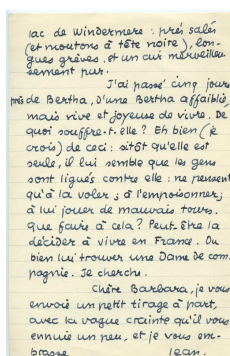 lac de Windermere : prés salés
(et moutons à tête noire), lon-
gues grèves, et un air merveilleu-
sement pur.
J'ai passé cinq jours
près de Bertha, d'une Bertha affaiblie,
mais vive et joyeuse de vivre. De
quoi souffre-t-elle ? Eh bien (je
crois) de ceci : sitôt qu'elle est
seule, il lui semble que les gens
sont ligués contre elle : ne pensent
qu'à la voler ; à l'empoisonner ;
à lui jouer de mauvais tours.
Que faire à cela ? Peut-être la
décider à vivre en France. Ou
bien lui trouver une Dame de com
pagnie. Je cherche.
Chère Barbara, je vous
envoie un petit tirage à part,
avec la vague crainte qu'il vous
ennuie un peu, et je vous em-
brasse Jean.